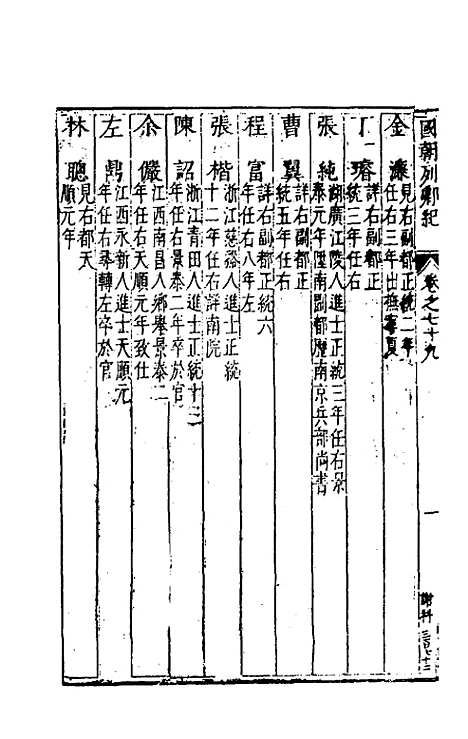 國朝列卿紀 卷之七十九 一 謝科 三百七十二
金濂 見右副都正統二年
任右三年出撫寧夏
丁璿 詳右副都正
統三年任右
張純 湖廣江陵人進士正統三年任右景
泰元年陞南副都歷南京兵部尚書
曹翼 詳右副都正
統五年任右
程富 詳右副都正統六
年任右八年左
張楷 浙江慈谿人進士正統
十二年任右詳南院
陳詔 浙江青田人進士正統十三
年任右景泰二年卒於官
余儼 江西南昌人鄉舉景泰二
年任右天順元年致仕
左鼎 江西永新人進士天順元
年任右尋轉左卒於官
林聰 見右都天
順元年